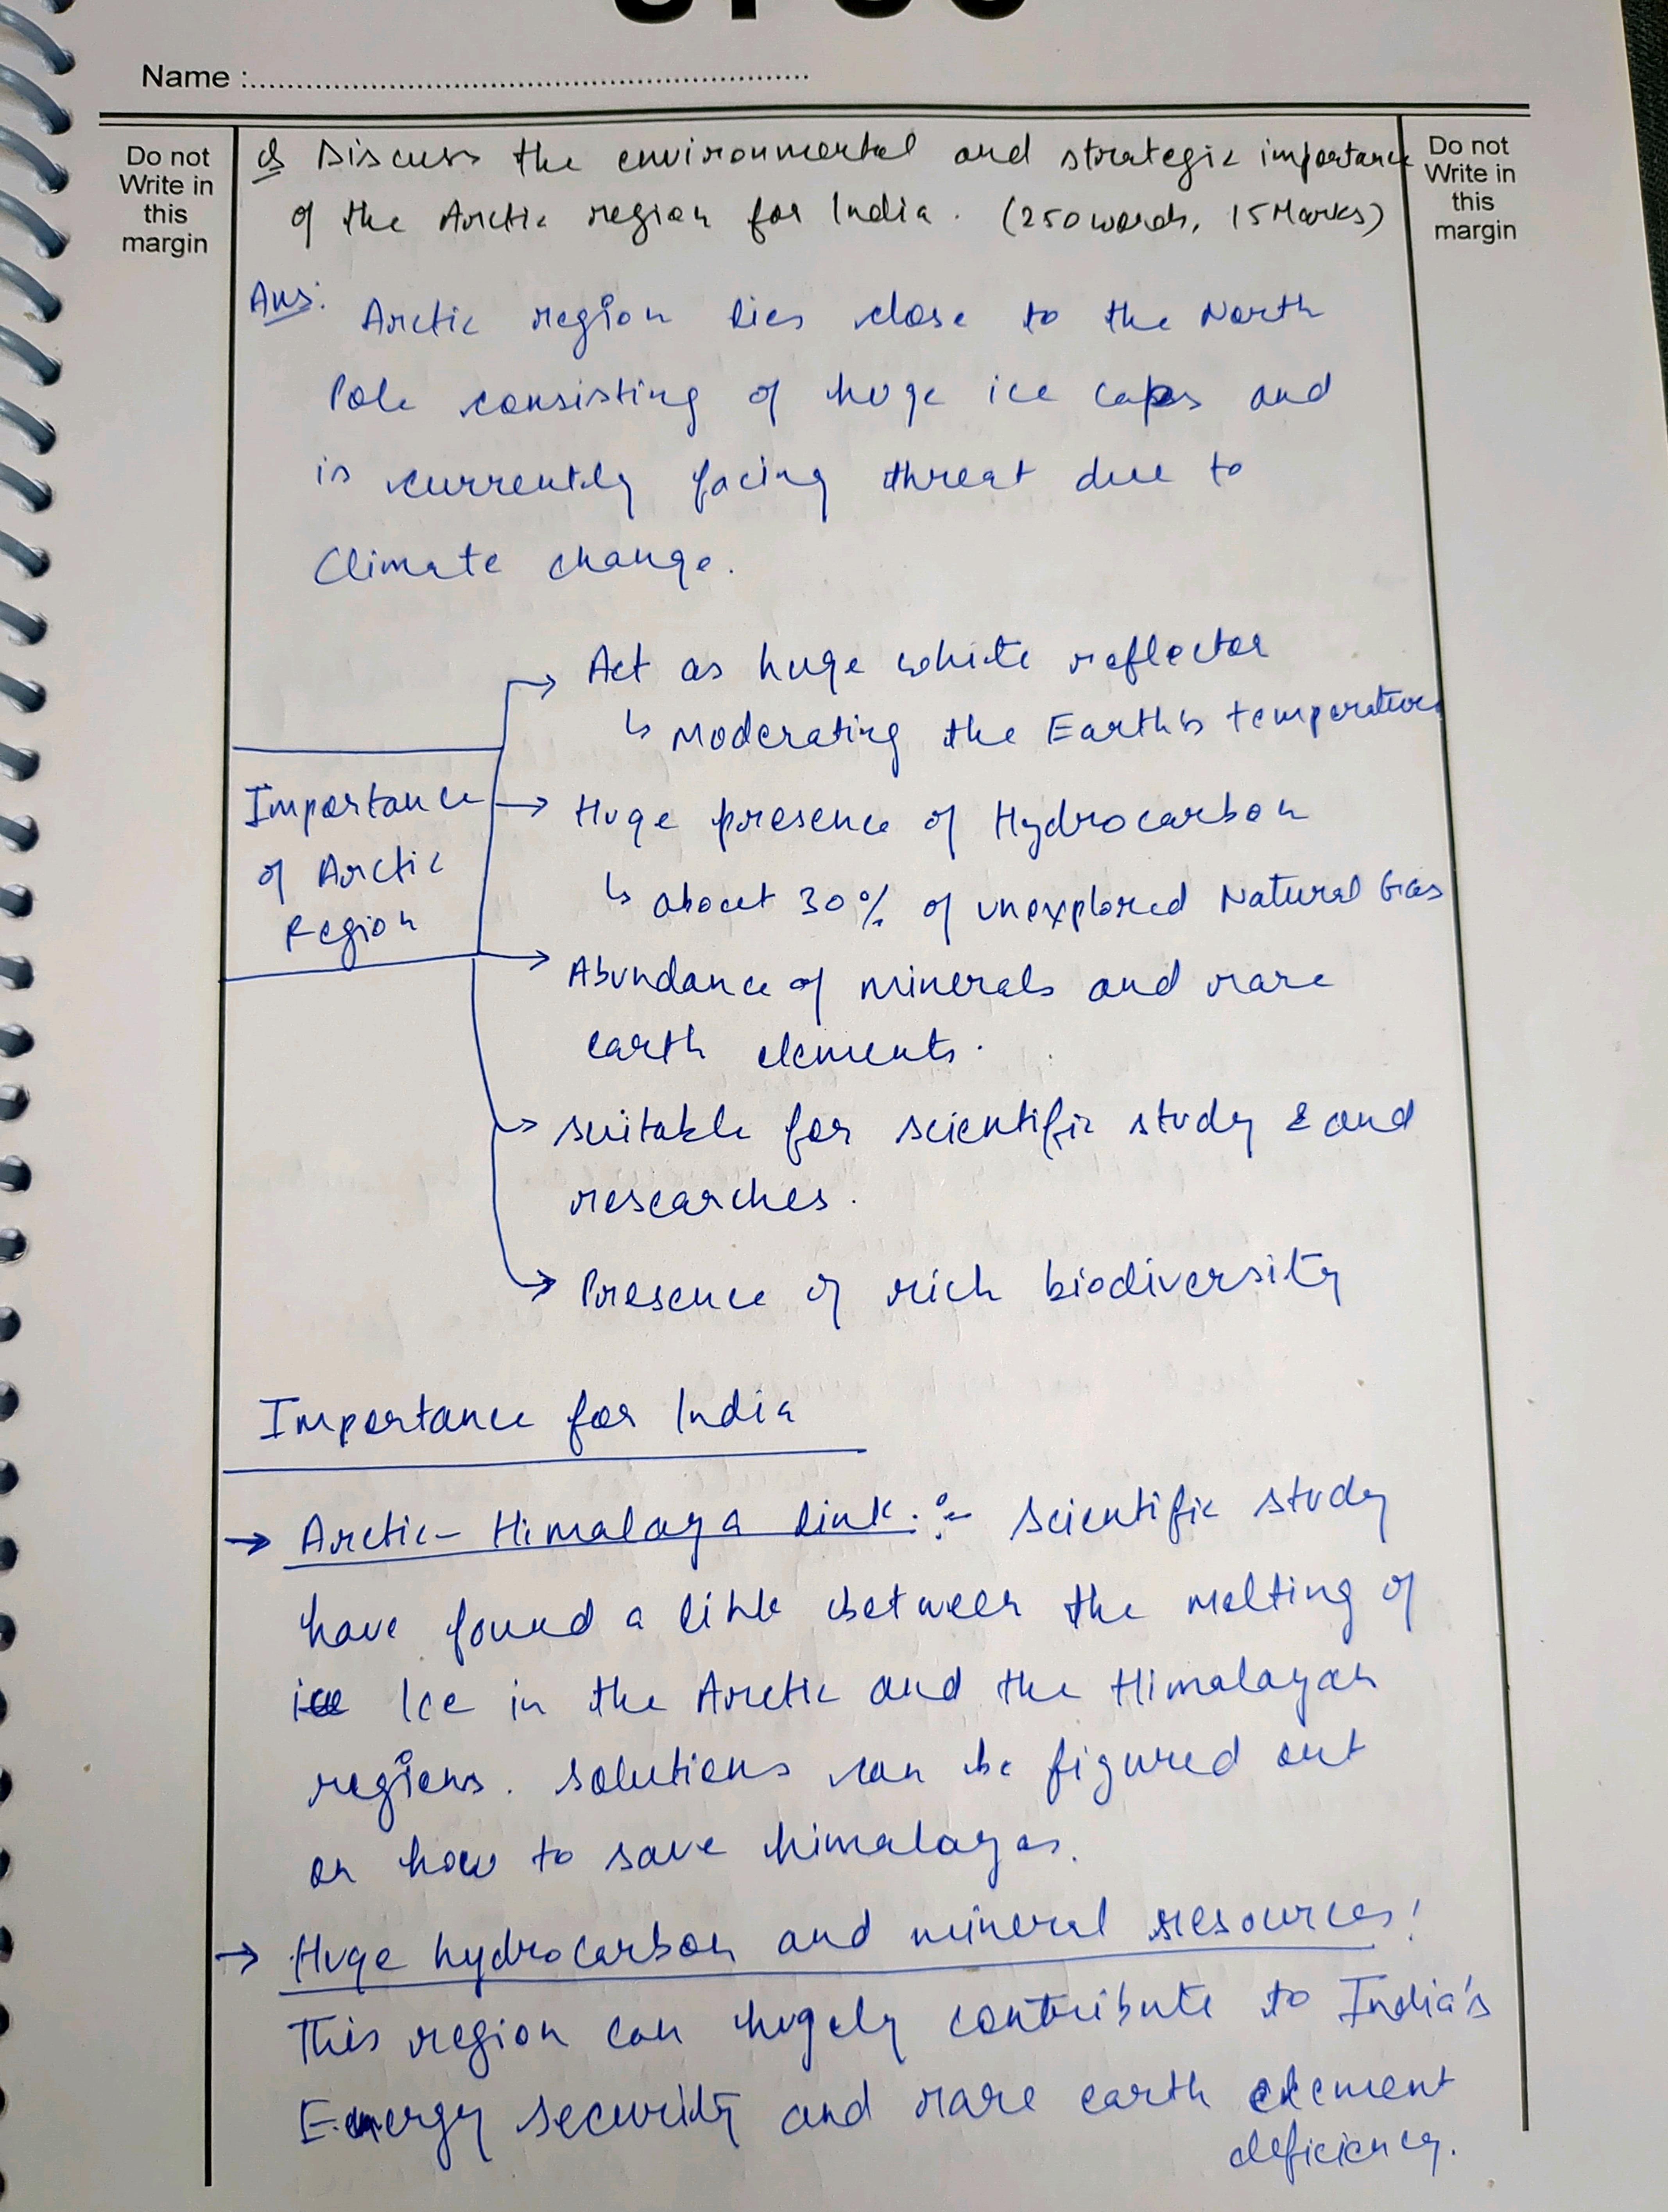 UPSC
Name :
Do not
Write in
this
margin
Do not
Write in
this
margin
Q Discuss the environmental and strategic importance
of the Arctic region for India. (250 words, 15 Marks)
Ans: Arctic region lies close to the North
Pole consisting of huge ice caps and
is currently facing threat due to
Climate change.
Importance
of Arctic
Region
→ Act as huge white reflector
↳ Moderating the Earth's temperature
→ Huge presence of Hydrocarbon
↳ about 30% of unexplored Natural Gas
→ Abundance of minerals and rare
earth elements.
→ suitable for scientific study & and
researches.
→ Presence of rich biodiversity
Importance for India
→ Arctic-Himalaya link :- Scientific study
have found a link between the melting of
ice Ice in the Arctic and the Himalayan
regions. Solutions can be figured out
on how to save himalayas.
→ Huge hydrocarbon and mineral resources:
This region can hugely contribute to India's
Energy security and rare earth element
deficiency.